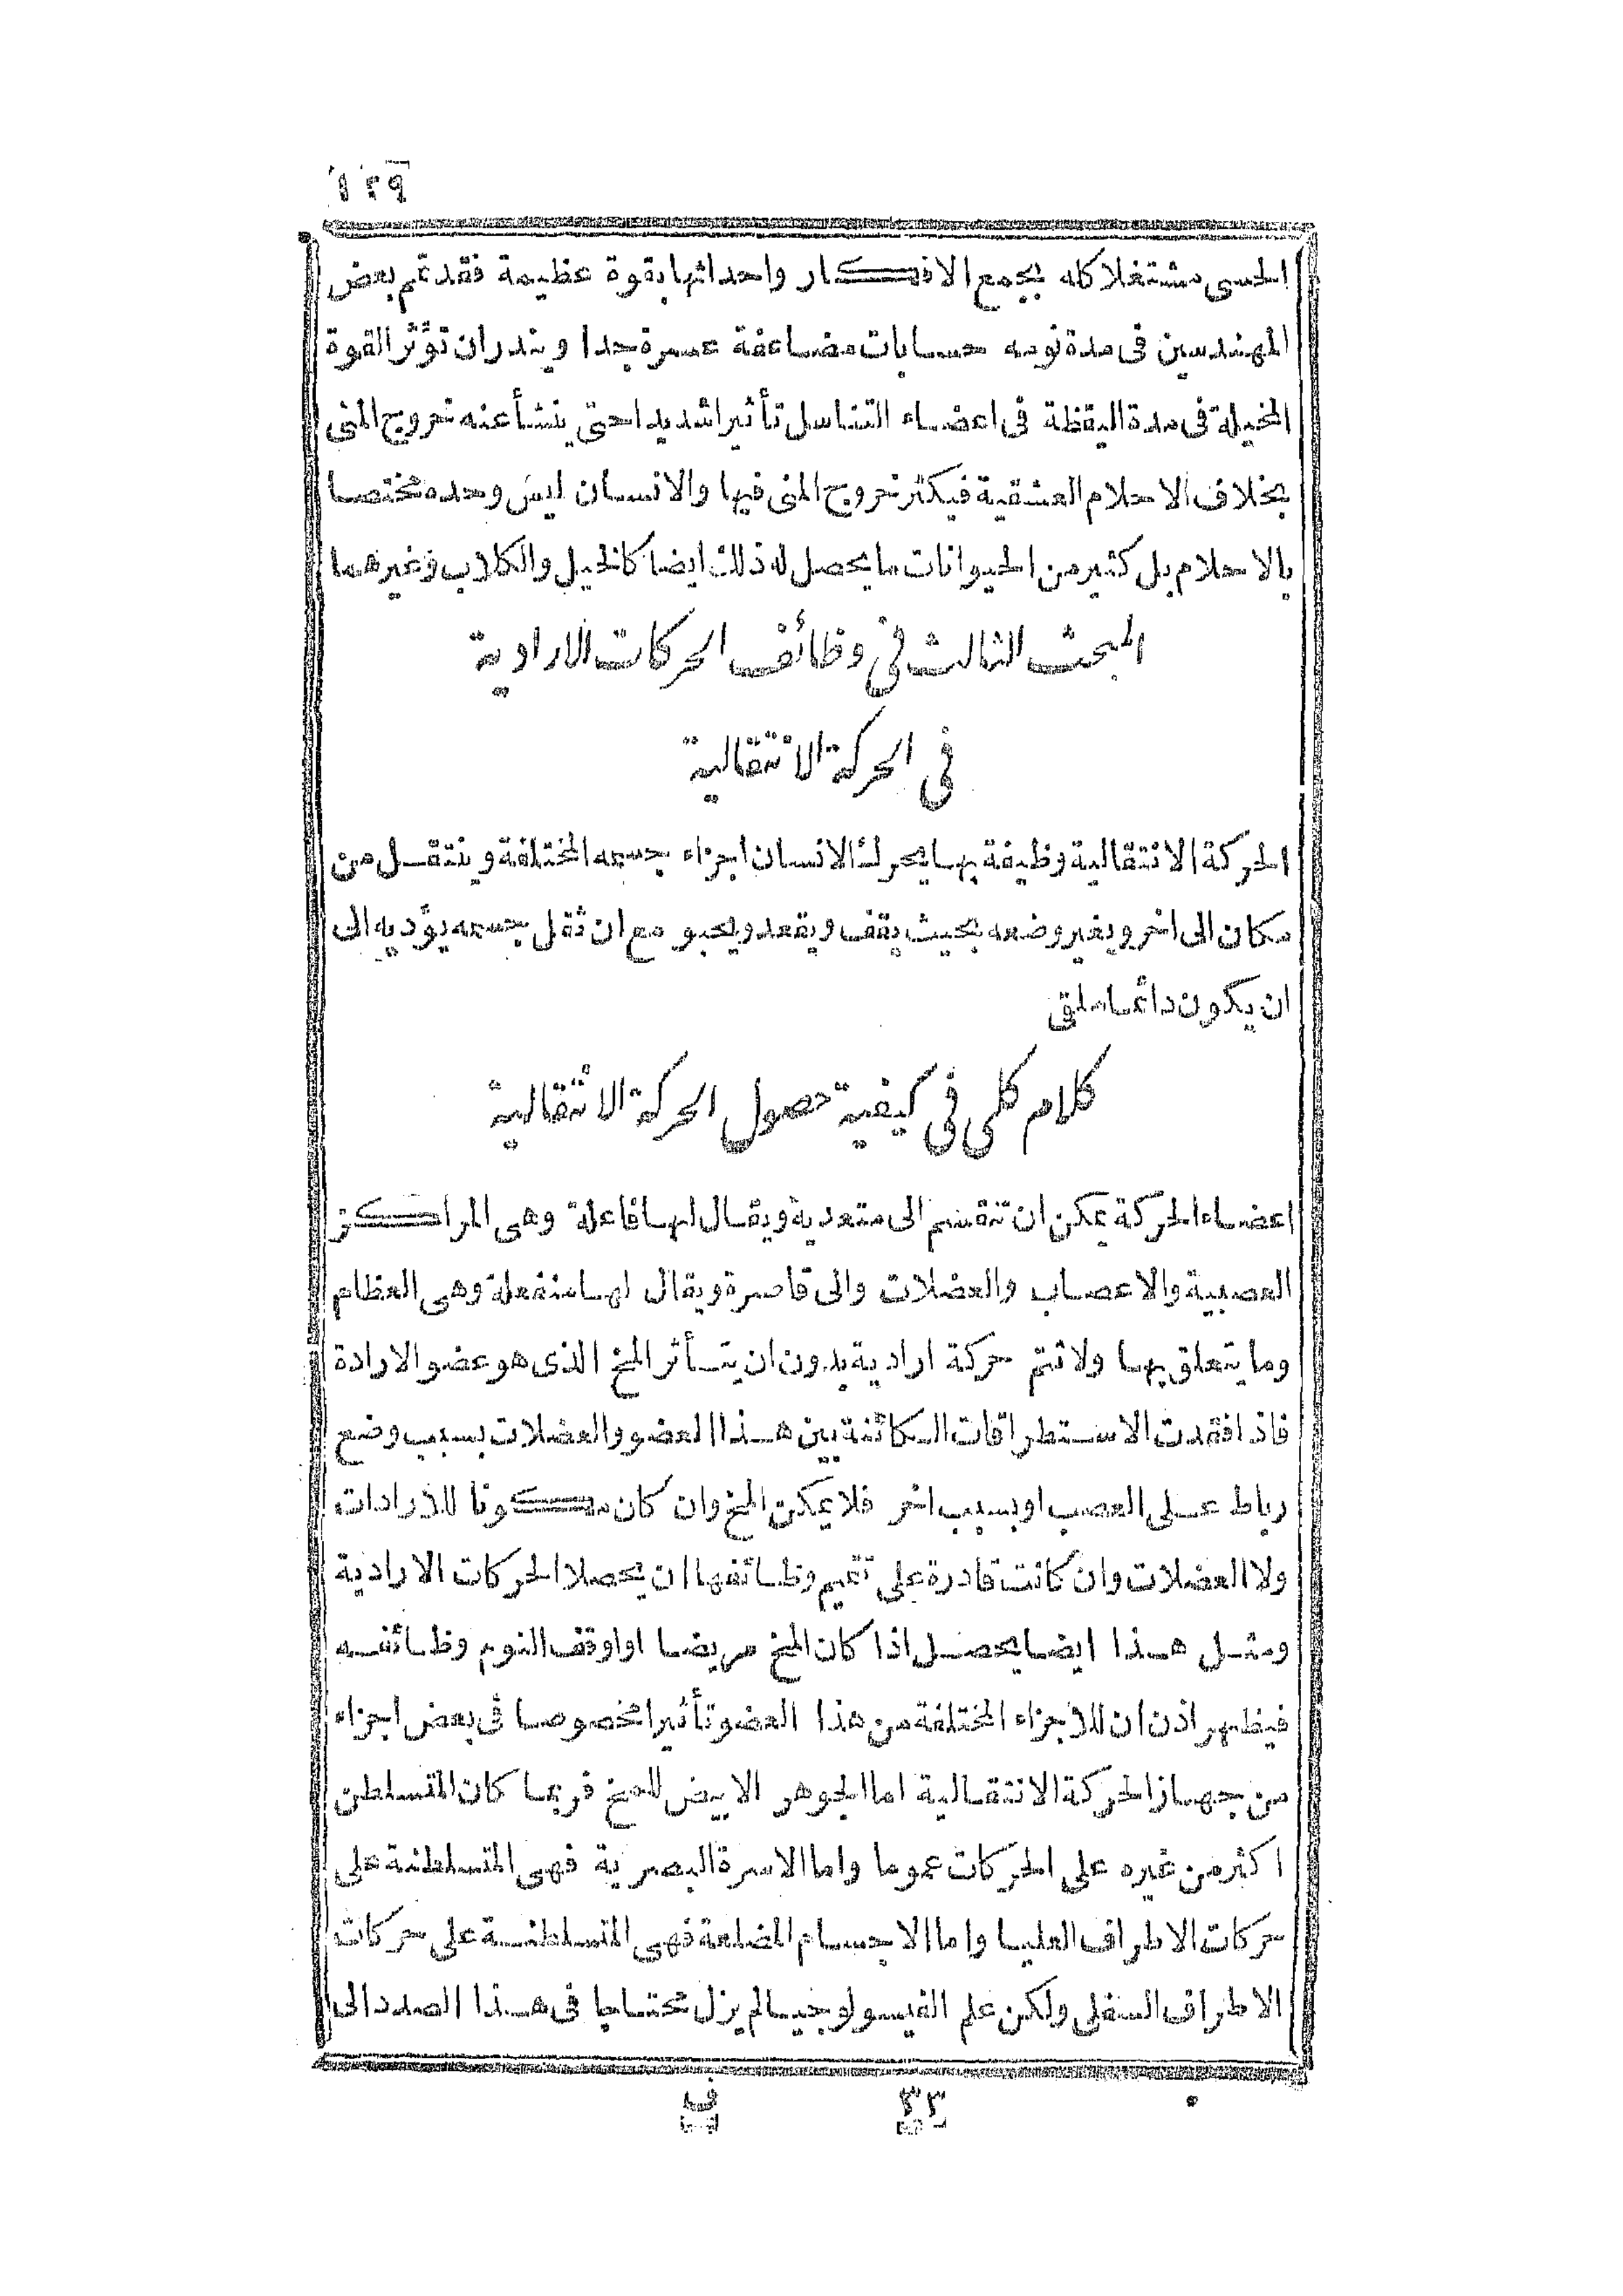 ١٢٩
الحسى مشتغلا كله بجمع الافكار واحداثها بقوة عظيمة فقد تمم بعض
المهندسين فى مدة نومه حسابات مضاعفة عسرة جدا ويندران تؤثر القوة
المخيلة فى مدة اليقظة فى اعضاء التناسل تأثيرا شديدا حتى ينشأ عنه خروج المنى
بخلاف الاحلام العشقية فيكثر خروج المنى فيها والانسان ليس وحده مختصا
بالاحلام بل كثير من الحيوانات ما يحصل له ذلك ايضا كالخيل والكلاب وغيرهما
المبحث الثالث فى وظائف الحركات الارادية
فى الحركة الانتقالية
الحركة الانتقالية وظيفة بها يحرك الانسان اجزاء جسمه المختلفة وينتقل من
مكان الى اخر ويغير وضعه بحيث يقف ويقعد ويحبو مع ان ثقل جسمه يؤديه الى
ان يكون دائما ملقى
كلام كلى فى كيفية حصول الحركة الانتقالية
اعضاء الحركة يمكن ان تنقسم الى متعدية ويقال لها فاعلة وهى المراكز
العصبية والاعصاب والعضلات والى قاصرة ويقال لها منفعلة وهى العظام
وما يتعلق بها ولا تتم حركة ارادية بدون ان يتأثر المخ الذى هو عضو الارادة
فاذا فقدت الاستطراقات الكائنة بين هذا العضو والعضلات بسبب وضع
رباط على العصب او بسبب اخر فلا يمكن المخ وان كان مكونا للارادات
ولا العضلات وان كانت قادرة على تتميم وظائفها ان يحصلا الحركات الارادية
ومثل هذا ايضا يحصل اذا كان المخ مريضا او اوقف النوم وظائفه
فيظهر اذن ان للاجزاء المختلفة من هذا العضو تأثيرا مخصوصا فى بعض اجزاء
من جهاز الحركة الانتقالية اما الجوهر الابيض للمخ فربما كان المتسلطن
اكثر من غيره على الحركات عموما واما الاسرة البصرية فهى المتسلطنة على
حركات الاطراف العليا واما الاجسام المضلعة فهى المتسلطنة على حركات
الاطراف السفلى ولكن علم الفيسولوجيا لم يزل محتاجا فى هذا الصدد الى
٣٣